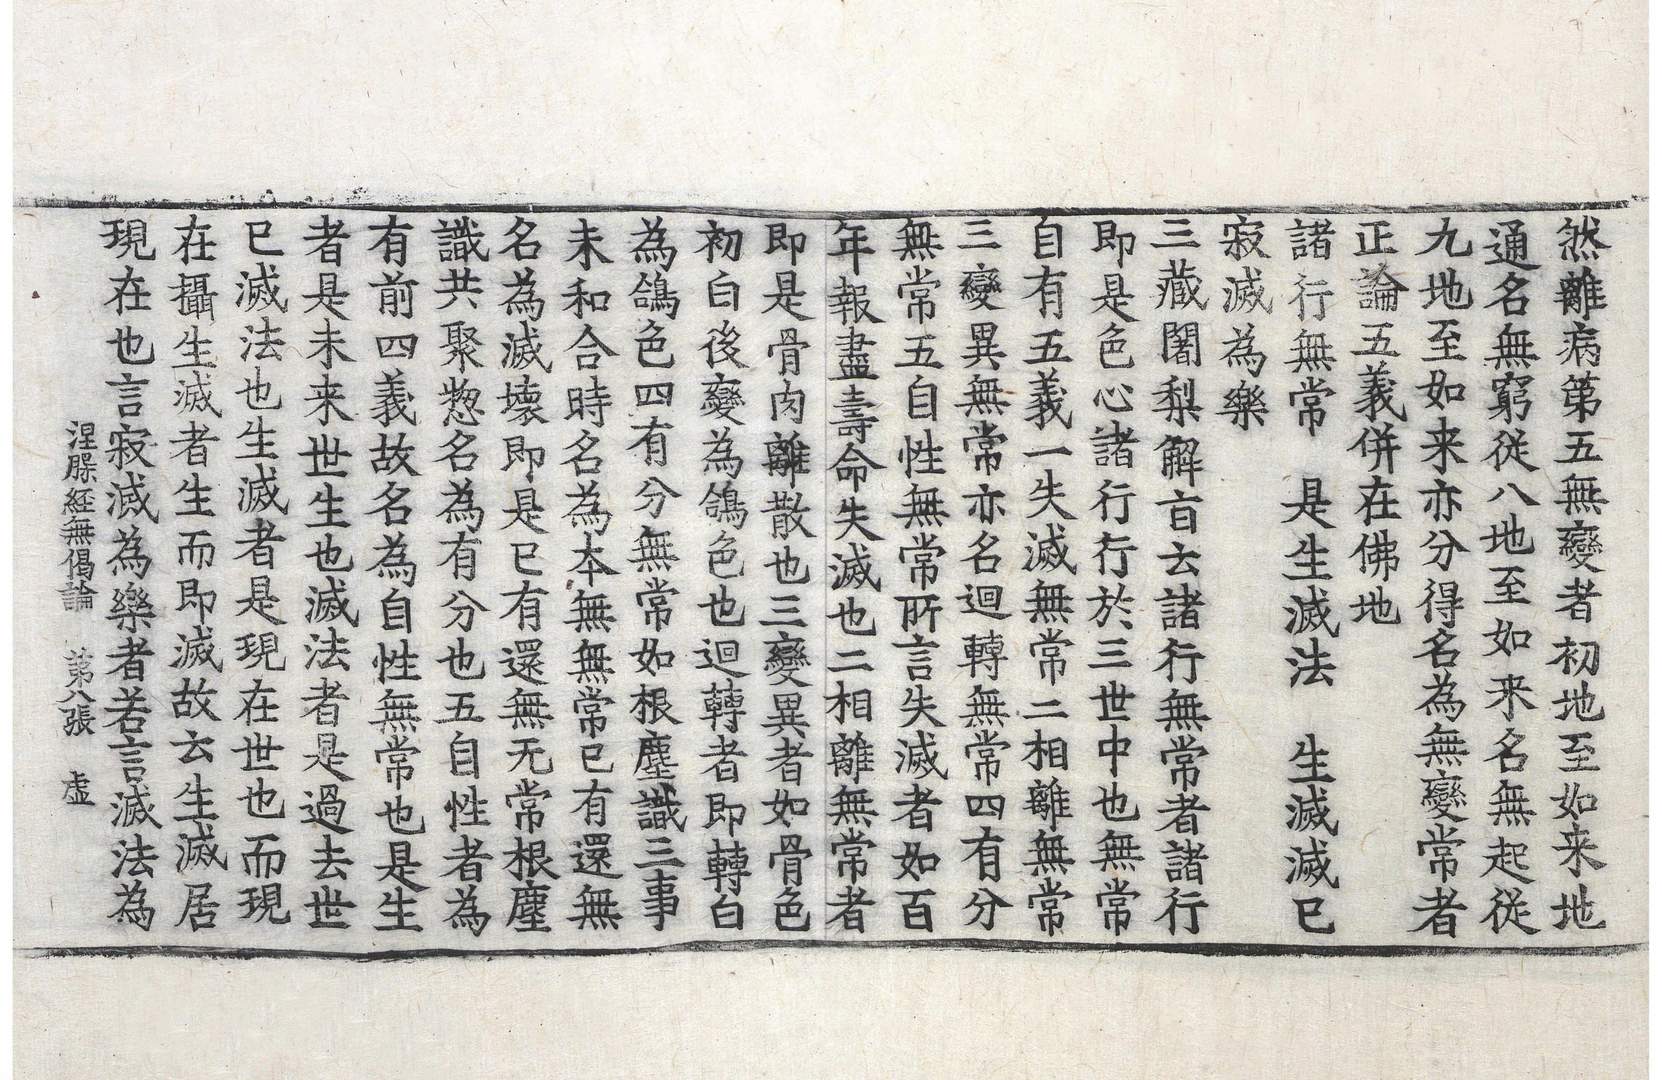 然離病第五無變者初地至如来地
通名無窮從八地至如来名無起從
九地至如来亦分得名為無變常者
正論五義併在佛地
諸行無常　是生滅法　生滅滅已
寂滅為樂
三藏闍梨解言云諸行無常者諸行
即是色心諸行行於三世中也無常
自有五義一失滅無常二相離無常
三變異無常亦名迴轉無常四有分
無常五自性無常所言失滅者如百
年報盡壽命失滅也二相離無常者
即是骨肉離散也三變異者如骨色
初白後變為鴿色也迴轉者即轉白
為鴿色四有分無常如根塵識三事
未和合時名為本無無常已有還無
名為滅壞即是已有還無无常根塵
識共聚惣名為有分也五自性者為
有前四義故名為自性無常也是生
者是未来世生也滅法者是過去世
已滅法也生滅者是現在世也而現
在攝生滅者生而即滅故云生滅居
現在也言寂滅為樂者若言滅法為
涅槃經無偈論　第八張　虛